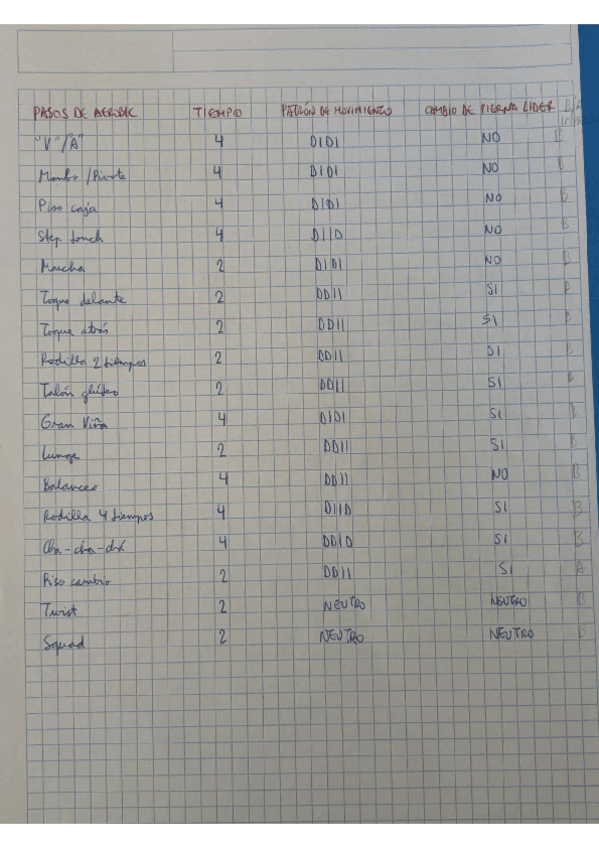 PASOS DE AEROBIC TIEMPO PATRÓN DE MOVIMIENTO CAMBIO DE PIERNA LIDER
"V"/"A" 4 DIDI NO B
Mambo/Pivote 4 DIDI NO B
Piso caja 4 DIDI NO B
Step touch 4 DIID NO B
Marcha 2 DIDI NO B
Toque delante 2 DDII SI B
Toque atrás 2 DDII SI B
Rodilla 2 tiempos 2 DDII SI B
Talón glúteo 2 DDII SI B
Gran Viña 4 DIDI SI B
Lunge 2 DDII SI B
Balanceo 4 DDII NO B
Rodilla 4 tiempos 4 DIID SI B
Cha-cha-chá 4 DDID SI B
Piso cambio 2 DDII SI A
Twist 2 NEUTRO NEUTRO B
Squad 2 NEUTRO NEUTRO B